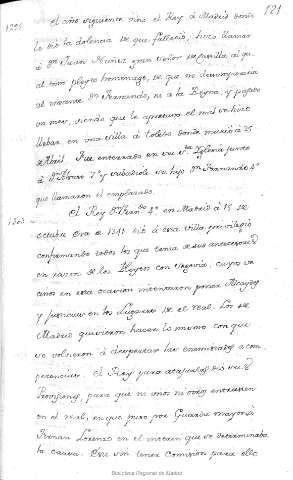 121
1295 el año siguiente vino el Rey á Madrid donde
le dió la dolencia de que fallecio, hizo llamar
á Dn. Juan Nuñez gran señor de Castilla al qu.
al tomo pleyto homenage, de que no desampararia
al
Dn. Fernando, ni á la Reyna, y pasado
un mes, viendo que le apretaba el mal se hizo
llebar en una villa á toledo donde murio á 25
de Abril. Fue enterrado en su Sta. Iglesia junto
á Dn. Sancho 7º y subcediole su hijo Dn. Fernando 4º
que llamaron el emplazado.
1303 El Rey Dn. Fern.do 4º en Madrid á 15 de
octubre Era de 1341. dió á esta villa previlegio
confirmando todos los que tenia de sus antecesores
en razon de los Reyes con Segovia, cuyos ve-
cinos en esta ocasion intentaron poner Alcaydes
y Justicias en los Lugares de el real. Los de
Madrid quisieron hacer lo mismo con que
se volvieron á despertar las enemistades a com-
petencias. el Rey para atajarlas
Pesquisas, para que ni unos ni otros entrasen
en el real, en que puso por Guarda mayor á
Fernan Lorenzo en el interin que se determinaba
la causa. Este sin tener comision para ello
Biblioteca Regional de Madrid